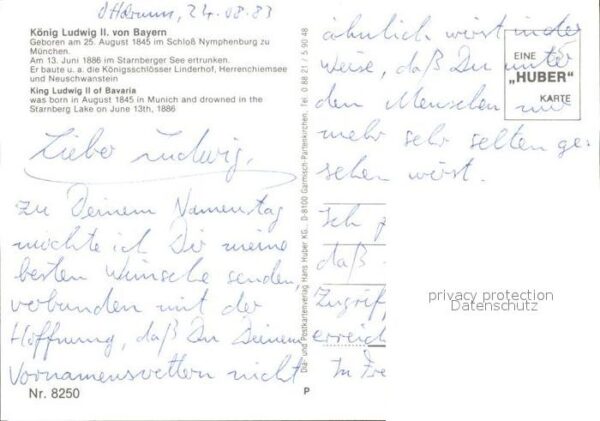 24.08.83
König Ludwig II. von Bayern
Geboren am 25. August 1845 im Schloß Nymphenburg zu
München.
Am 13. Juni 1886 im Starnberger See ertrunken.
Er baute u. a. die Königsschlösser Linderhof, Herrenchiemsee
und Neuschwanstein
King Ludwig II of Bavaria
was born in August 1845 in Munich and drowned in the
Starnberg Lake on June 13th, 1886
Lieber Ludwig,
zu Deinem Namenstag
möchte ich Dir meine
besten Wünsche senden,
verbunden mit der
Hoffnung, daß Du Deinem
Vornamensvettern nicht
Nr. 8250
P
Dia- und Postkartenverlag Hans Huber KG., D-8100 Garmisch-Partenkirchen, Tel. 0 88 21 / 5 90 48
ähnlich wirst in der
Weise, daß Du unter
den Menschen nur
mehr sehr selten ge-
sehen wirst.
Ich
daß
Zugriff,
erreich
In Fre
EINE
„HUBER"
KARTE
privacy protection
Datenschutz